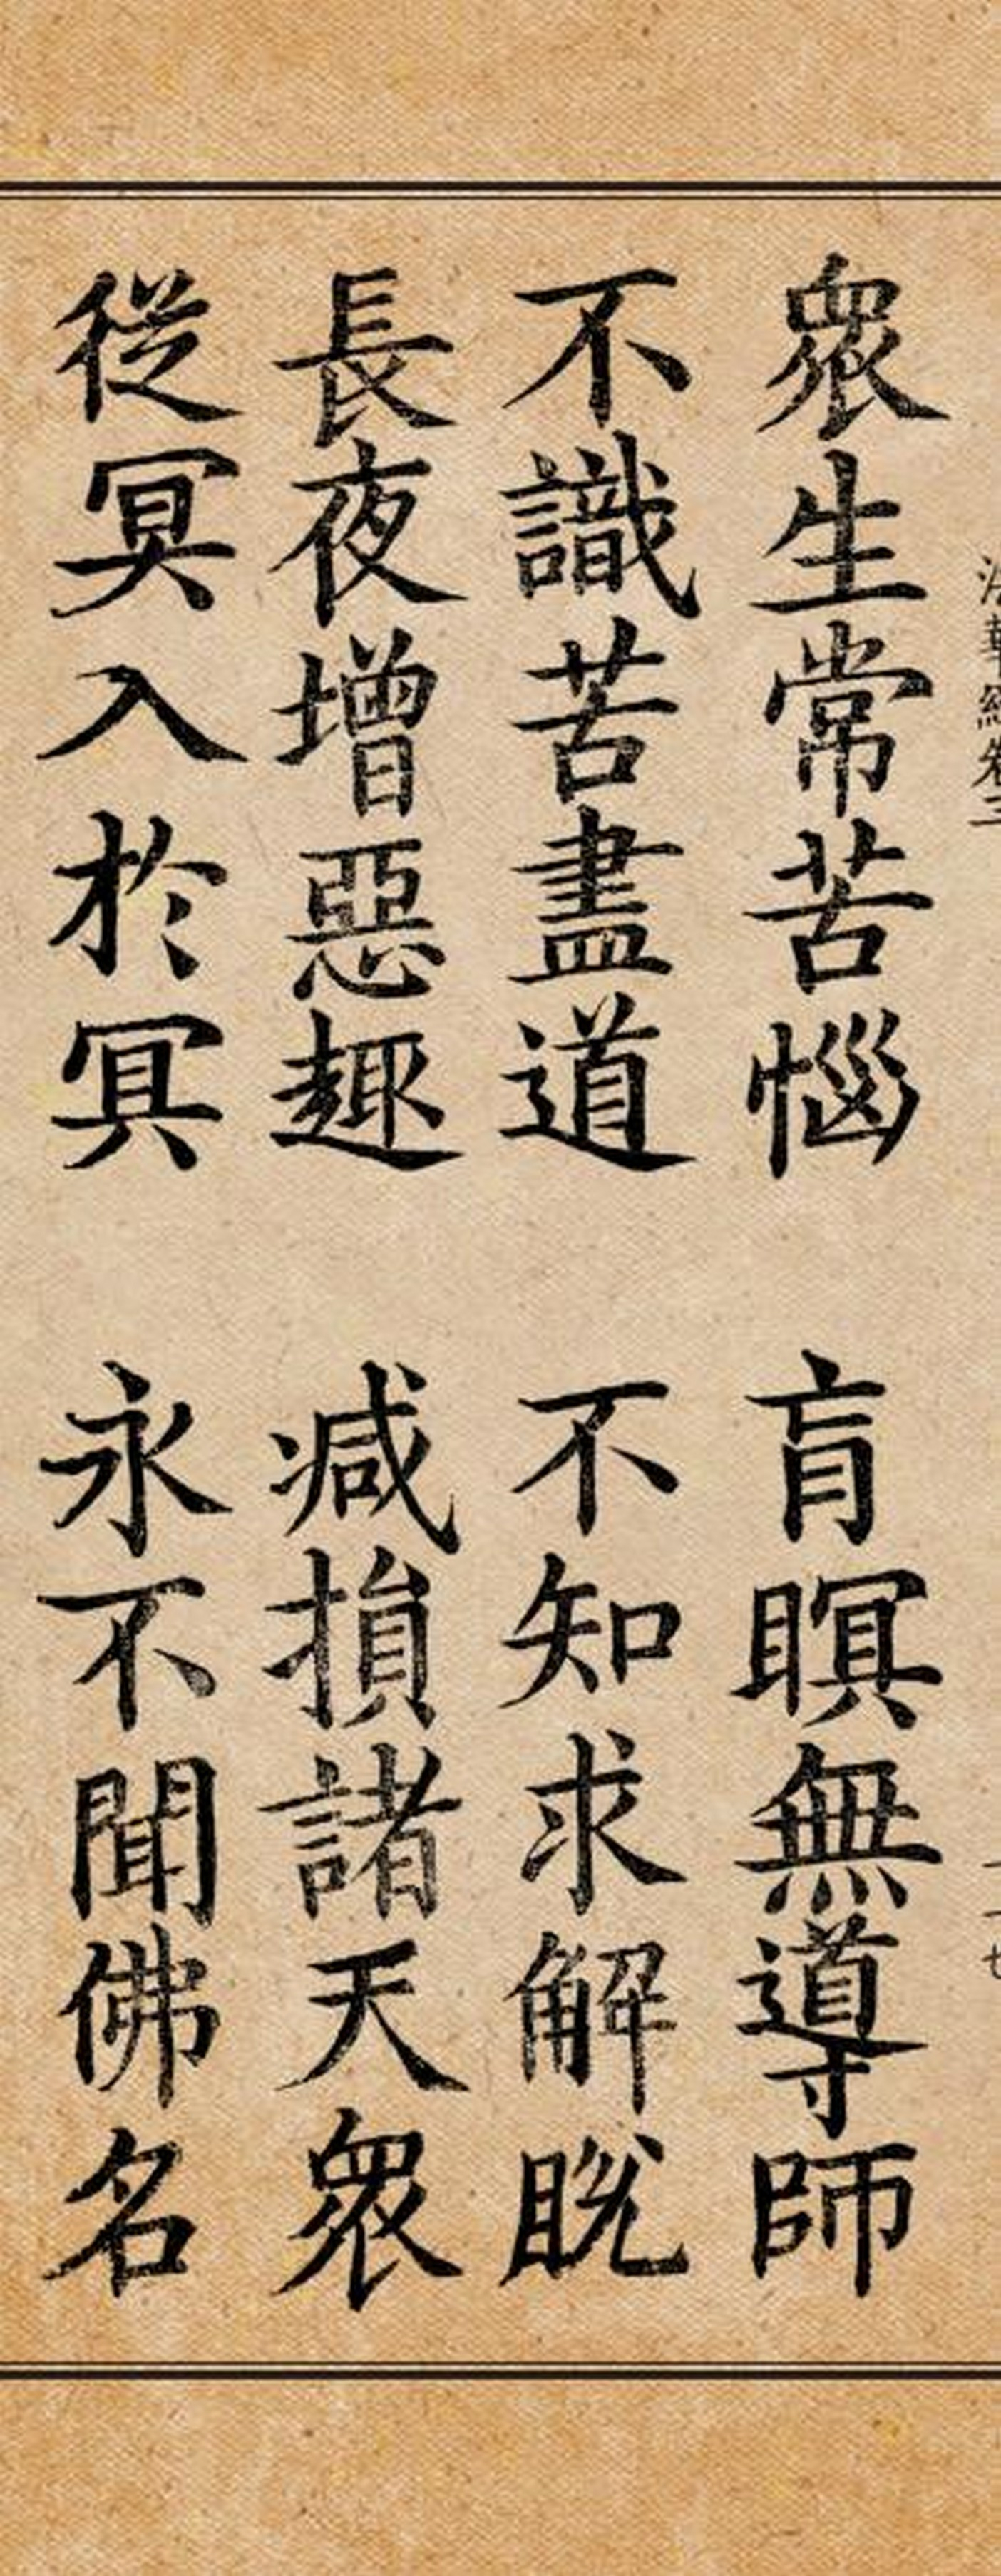 衆生常苦惱 盲瞑無導師
不識苦盡道 不知求解脫
長夜增惡趣 减損諸天衆
從冥入於冥 永不聞佛名